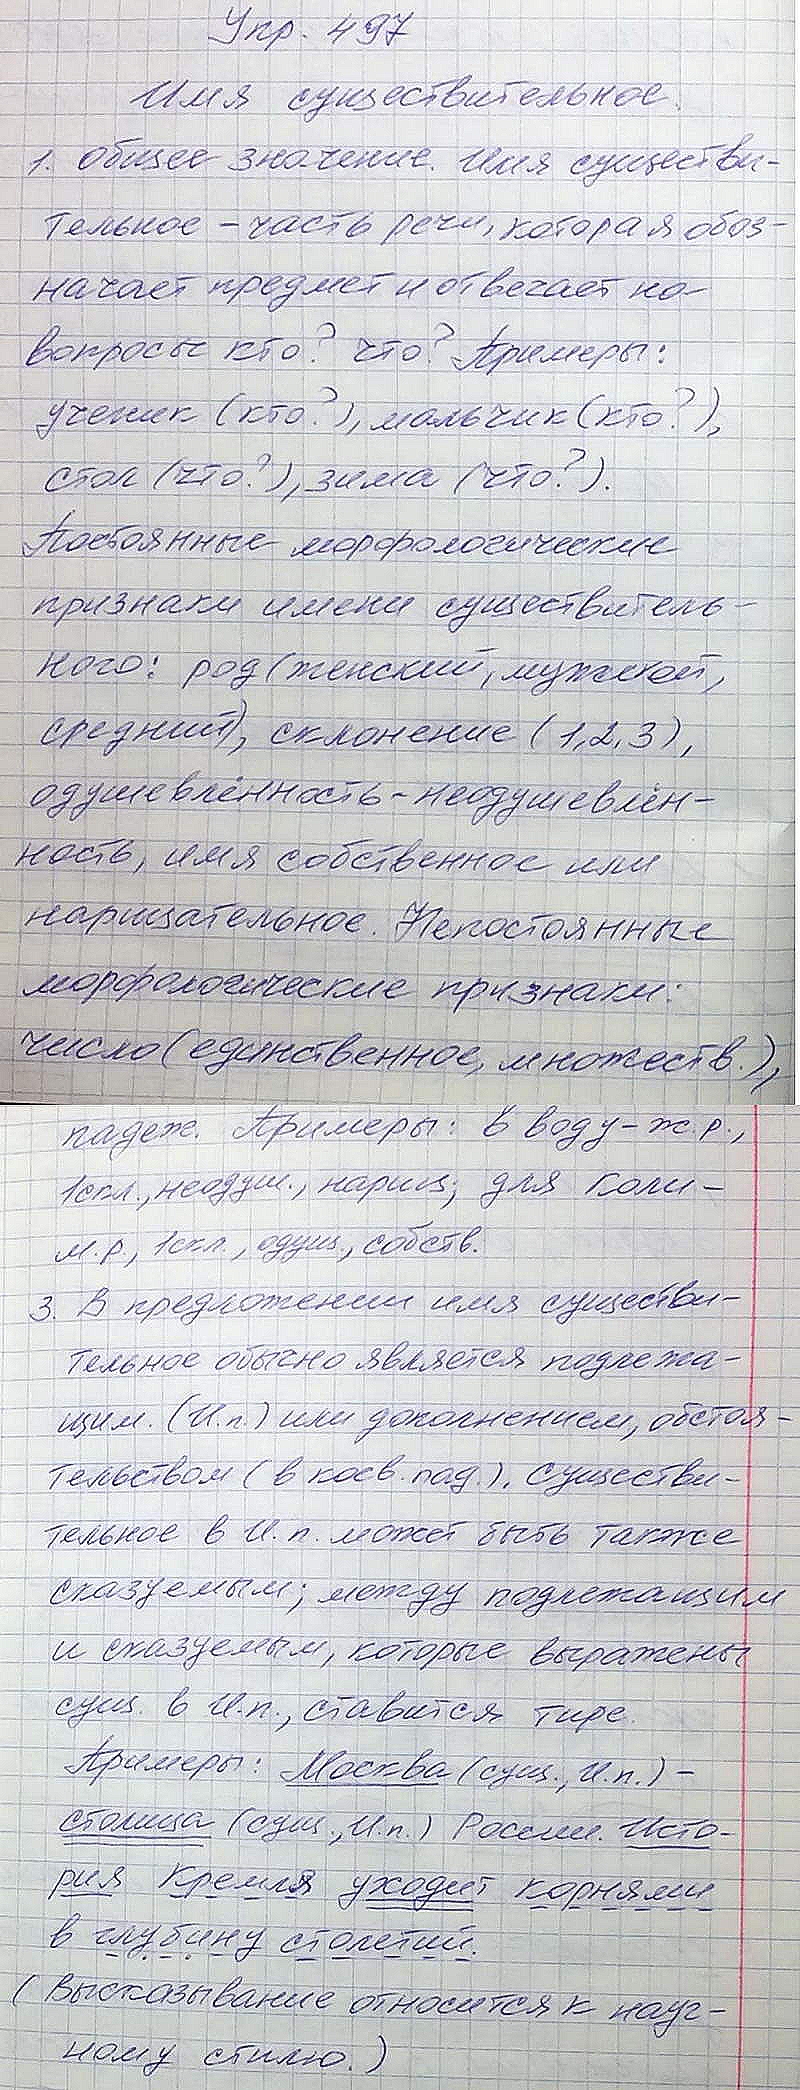 Упр. 497
Имя существительное.
1. Общее значение. Имя существи-
тельное – часть речи, которая обоз-
начает предмет и отвечает на
вопросы кто? что? Примеры:
ученик (кто?), мальчик (кто?),
стол (что?), зима (что?).
Постоянные морфологические
признаки имени существитель-
ного: род (женский, мужской,
средний), склонение (1,2,3),
одушевлённость-неодушевлён-
ность, имя собственное или
нарицательное. Непостоянные
морфологические признаки:
число (единственное, множеств.),
падеж. Примеры: в воду – ж.р.,
1скл., неодуш., нариц; для Коли –
м.р., 1скл., одуш., собств.
3. В предложении имя существи-
тельное обычно является подлежа-
щим. (И.п.) или дополнением, обстоя-
тельством (в косв. пад.). Существи-
тельное в И.п. может быть также
сказуемым; между подлежащим
и сказуемым, которые выражены
сущ. в И.п., ставится тире.
Примеры: Москва (сущ., И.п.) –
столица (сущ., И.п.) России. Исто-
рия Кремля уходит корнями
в глубину столетий.
(Высказывание относится к науч-
ному стилю.)